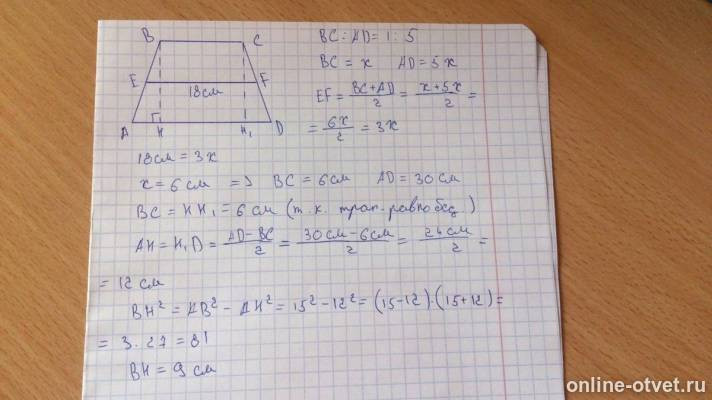 B C
E F
18см
A H H₁ D
BC : AD = 1 : 5
BC = x AD = 5x
EF = (BC+AD)/2 = (x+5x)/2 =
= 6x/2 = 3x
18см = 3x
x = 6 см => BC = 6см AD = 30 см
BC = HH₁ = 6 см (т.к. трап. равнобед.)
AH = H₁D = (AD-BC)/2 = (30см-6см)/2 = 24см/2 =
= 12 см
BH² = AB² - AH² = 15² - 12² = (15-12)·(15+12) =
= 3 · 27 = 81
BH = 9 см
online-otvet.ru